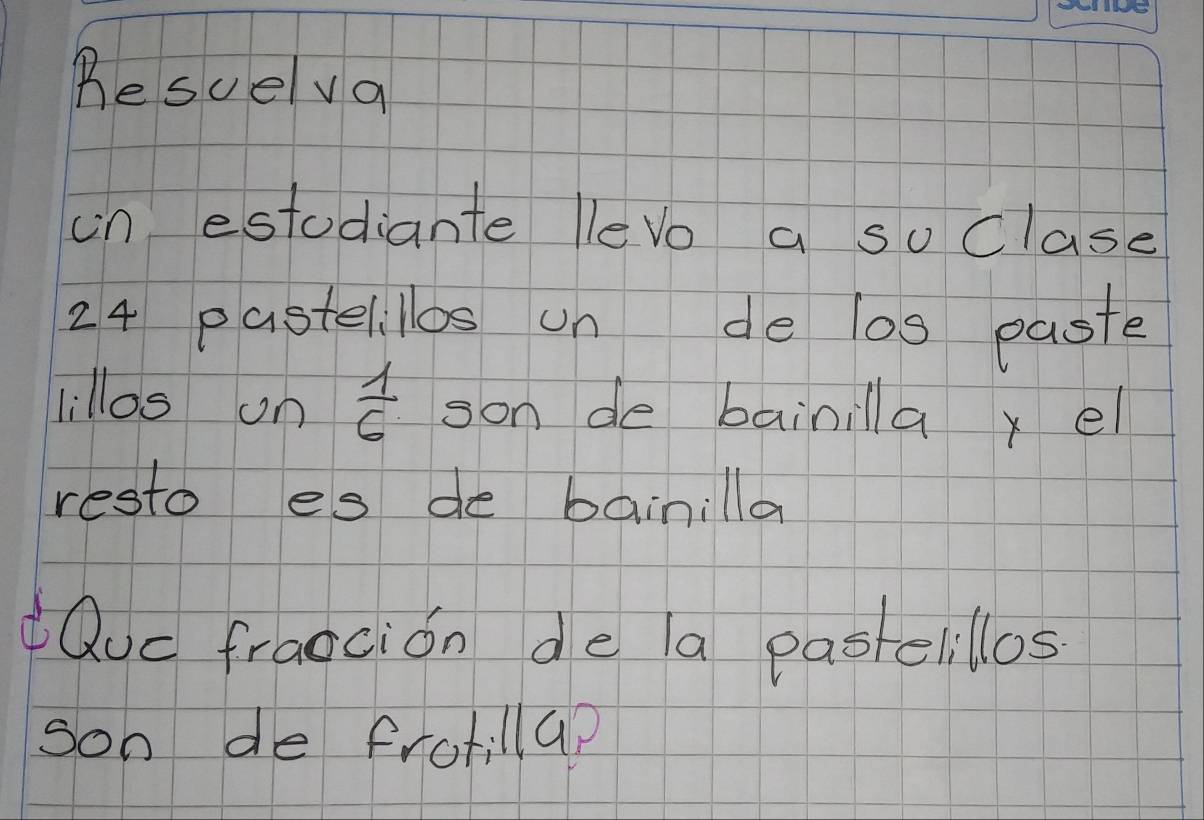 Scribe
Resuelva
un estudiante llevo a su clase
24 pastelillos un de los paste
lillos un 1/6 son de bainilla y el
resto es de bainilla
¿Que fracción de la pastelillos.
son de frotilla?